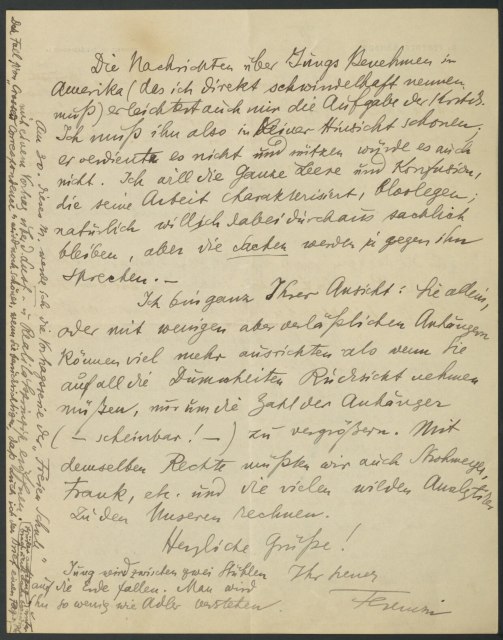 Die Nachrichten über Jungs Benehmen in
Amerika (des ich direkt schwindelhaft nennen
muß) erleichtert auch mir die Aufgabe der Kritik.
Ich muß ihn also in keiner Hinsicht schonen;
er verdient es nicht und nützen würde es auch
nicht. Ich will die Ganze Leere und Konfusion,
die seine Arbeit charakterisiert, bloslegen;
natürlich will ich dabei durchaus sachlich
bleiben, aber die Sachen werden ja gegen ihn
sprechen. —
Ich bin ganz Ihrer Ansicht: Sie allein,
oder mit wenigen aber verläßlichen Anhängern
können viel mehr ausrichten als wenn Sie
auf all die Dummheiten Rücksicht nehmen
müßen, nur um die Zahl der Anhänger
(— scheinbar! —) zu vergrößern. Mit
demselben Rechte müßten wir auch Strohmeyer,
Frank, etc. und die vielen wilden Analytiker
zu den Unseren rechnen.
Herzliche Grüße!
Ihr treuer
Ferenczi
Jung wird zwischen zwei Stühlen
auf die Erde fallen. Man wird
ihn so wenig wie Adler verstehen.
Am 30. dieses M. werde ich die Vortragsserie der „Freien Schule“
mit einem Vortrag über Lust- u Realitätsprinzip eröffnen.